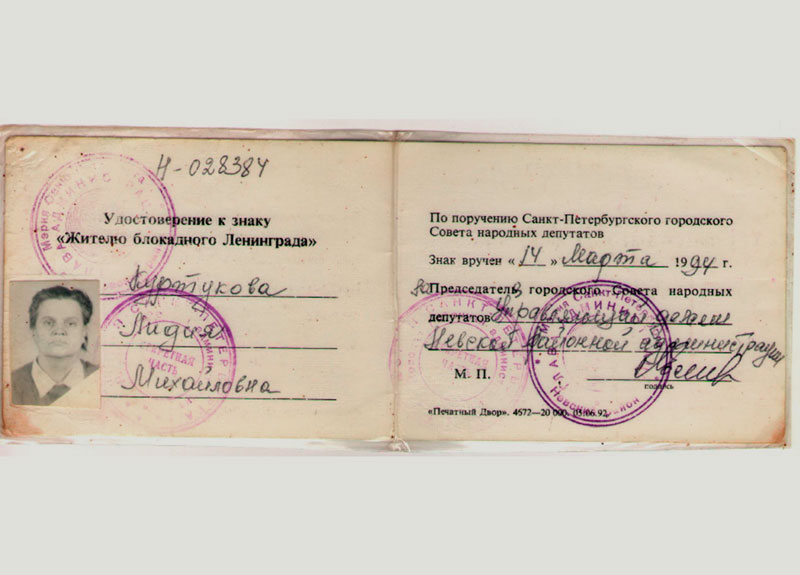 Н-028384
Удостоверение к знаку
«Жителю блокадного Ленинграда»
Куртукова
Лидия
Михайловна
СЕКРЕТНАЯ
ЧАСТЬ
По поручению Санкт-Петербургского городского
Совета народных депутатов
Знак вручен «14» Марта 1994 г.
Председатель городского Совета народных
депутатов Управляющий делами
Невской районной администрации
М. П.
подпись
«Печатный Двор». 4672—20 000. 05.06.92.